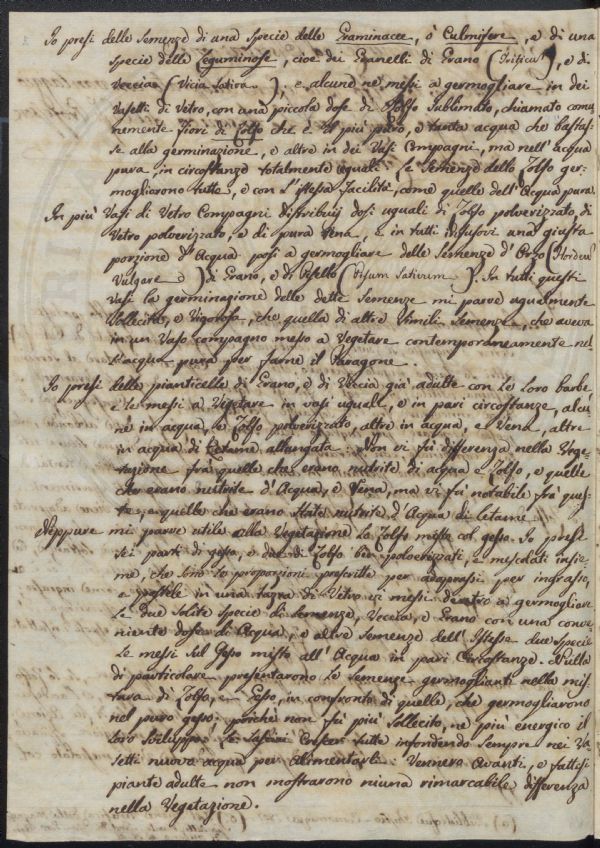 Io presi delle Semenze di una Specie delle Graminacee, ò Culmifere, e di una
Specie delle Leguminose, cioè dei Granelli di Grano (Triticum), e di
Veccia (Vicia Sativa), e alcune ne messi a germogliare in dei
Vaselli di Vetro, con una piccola dose di Zolfo Sublimato, chiamato comu
nemente Fiori di Zolfo che è il più puro, e tanta acqua che bastas=
se alla germinazione, e altre in dei Vasi Compagni, ma nell'acqua
pura, in circostanze totalmente uguali: Le Semenze dello Zolfo ger=
mogliorono tutte, e con l'istessa facilità, come quelle dell'Acqua pura.
In più Vasi di Vetro Compagni distribuij dosi uguali di Zolfo polverizzato, di
Vetro polverizzato, e di pura Rena, e in tutti infusovi una giusta
porzione d'Acqua posi a germogliare delle Semenze d'Orzo (Hordeu
Vulgare) di Grano, e di Pisello (Pisum Sativum). In tutti questi
Vasi la germinazione delle dette Semenze mi parve ugualmente
Sollecita, e Vigorosa, che quella di altre Simili Semenze, che aveva
in un Vaso compagno messo a Vegetare contemporaneamente nel=
l'acqua pura per farne il Paragone.
Io presi delle pianticelle di Grano, e di Veccia già adulte con le Loro barbe
e le messi a Vegetare in vasi uguali, e in pari circostanze, alcu=
ne in acqua, e Zolfo polverizzato, altre in acqua, e Rena, altre
in acqua di Letame allungata: Non vi fù differenza nella Vege=
tazione frà quelle che erano nutrite di acqua e Zolfo, e quelle
che erano nutrite d'Acqua, e Rena, ma vi fù notabile frà ques=
te, e quelle che erano State nutrite d'Acqua di Letame.
Neppure mi parve utile alla Vegetazione lo Zolfo misto col gesso. Io presi
Sei parti di gesso, e due di Zolfo ben polverizzati, e mescolati insie=
me, che sono le proporzioni prescritte per adoprarsi per ingrasso,
e postele in una tazza di Vetro vi messi dentro a germogliare
le due Solite Specie di Semenze, Veccia, e Grano con una conve=
niente dose di Acqua, e altre Semenze dell'Istesse due Specie
le messi Sul Gesso misto all'Acqua in pari Circostanze. Nulla
di particolare presentarono le Semenze germoglianti nella mis=
tura di Zolfo, e Gesso, in confronto di quelle, che germogliarono
nel puro gesso: poichè non fù più Sollecito, nè più energico il
loro Sviluppo: Le lasciai Crescer tutte infondendo Sempre nei Va
setti nuova acqua per alimentarli: Vennero Avanti, e fattesi
piante adulte non mostrarono niuna rimarcabile differenza
nella Vegetazione.